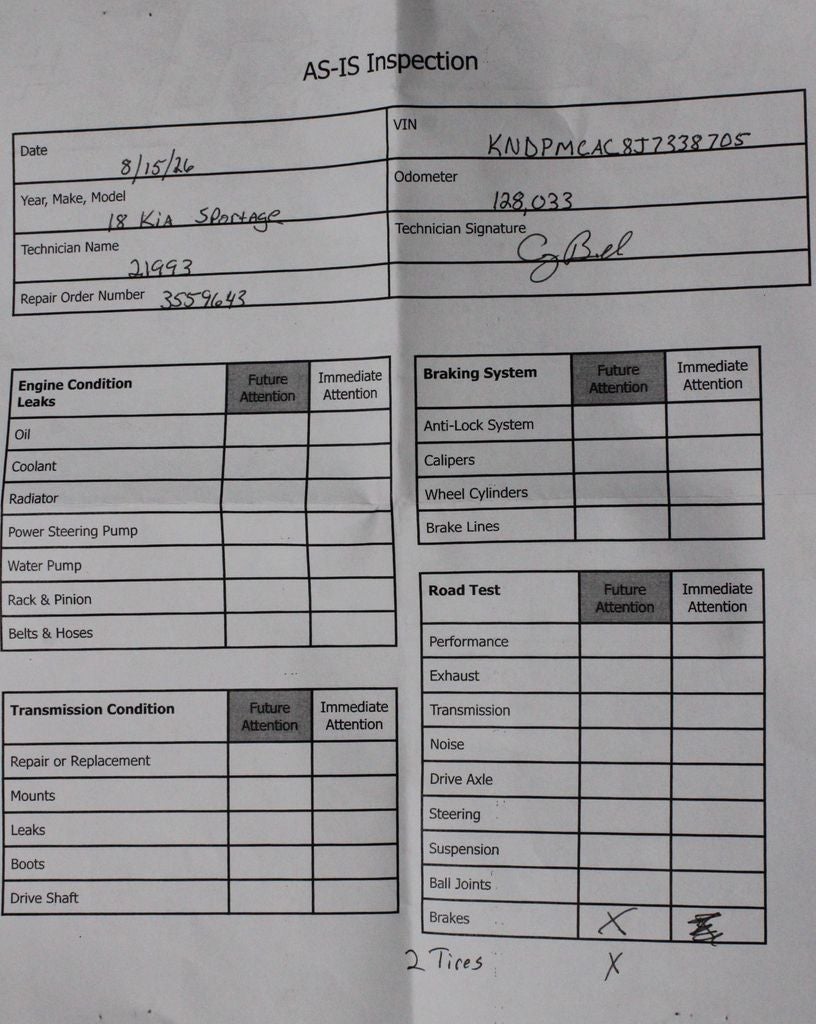 AS-IS Inspection
Date 8/15/26
VIN KNDPMCAC8J7338705
Year, Make, Model 18 KiA SPortage
Odometer 128,033
Technician Name 21993
Technician Signature
Repair Order Number 3559643
Engine Condition Leaks Future Attention Immediate Attention
Oil
Coolant
Radiator
Power Steering Pump
Water Pump
Rack & Pinion
Belts & Hoses
Transmission Condition Future Attention Immediate Attention
Repair or Replacement
Mounts
Leaks
Boots
Drive Shaft
Braking System Future Attention Immediate Attention
Anti-Lock System
Calipers
Wheel Cylinders
Brake Lines
Road Test Future Attention Immediate Attention
Performance
Exhaust
Transmission
Noise
Drive Axle
Steering
Suspension
Ball Joints
Brakes X
2 Tires X